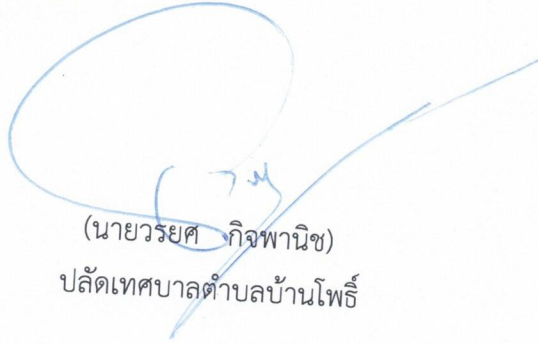 (นายวรยศ กิจพานิช)
ปลัดเทศบาลตำบลบ้านโพธิ์